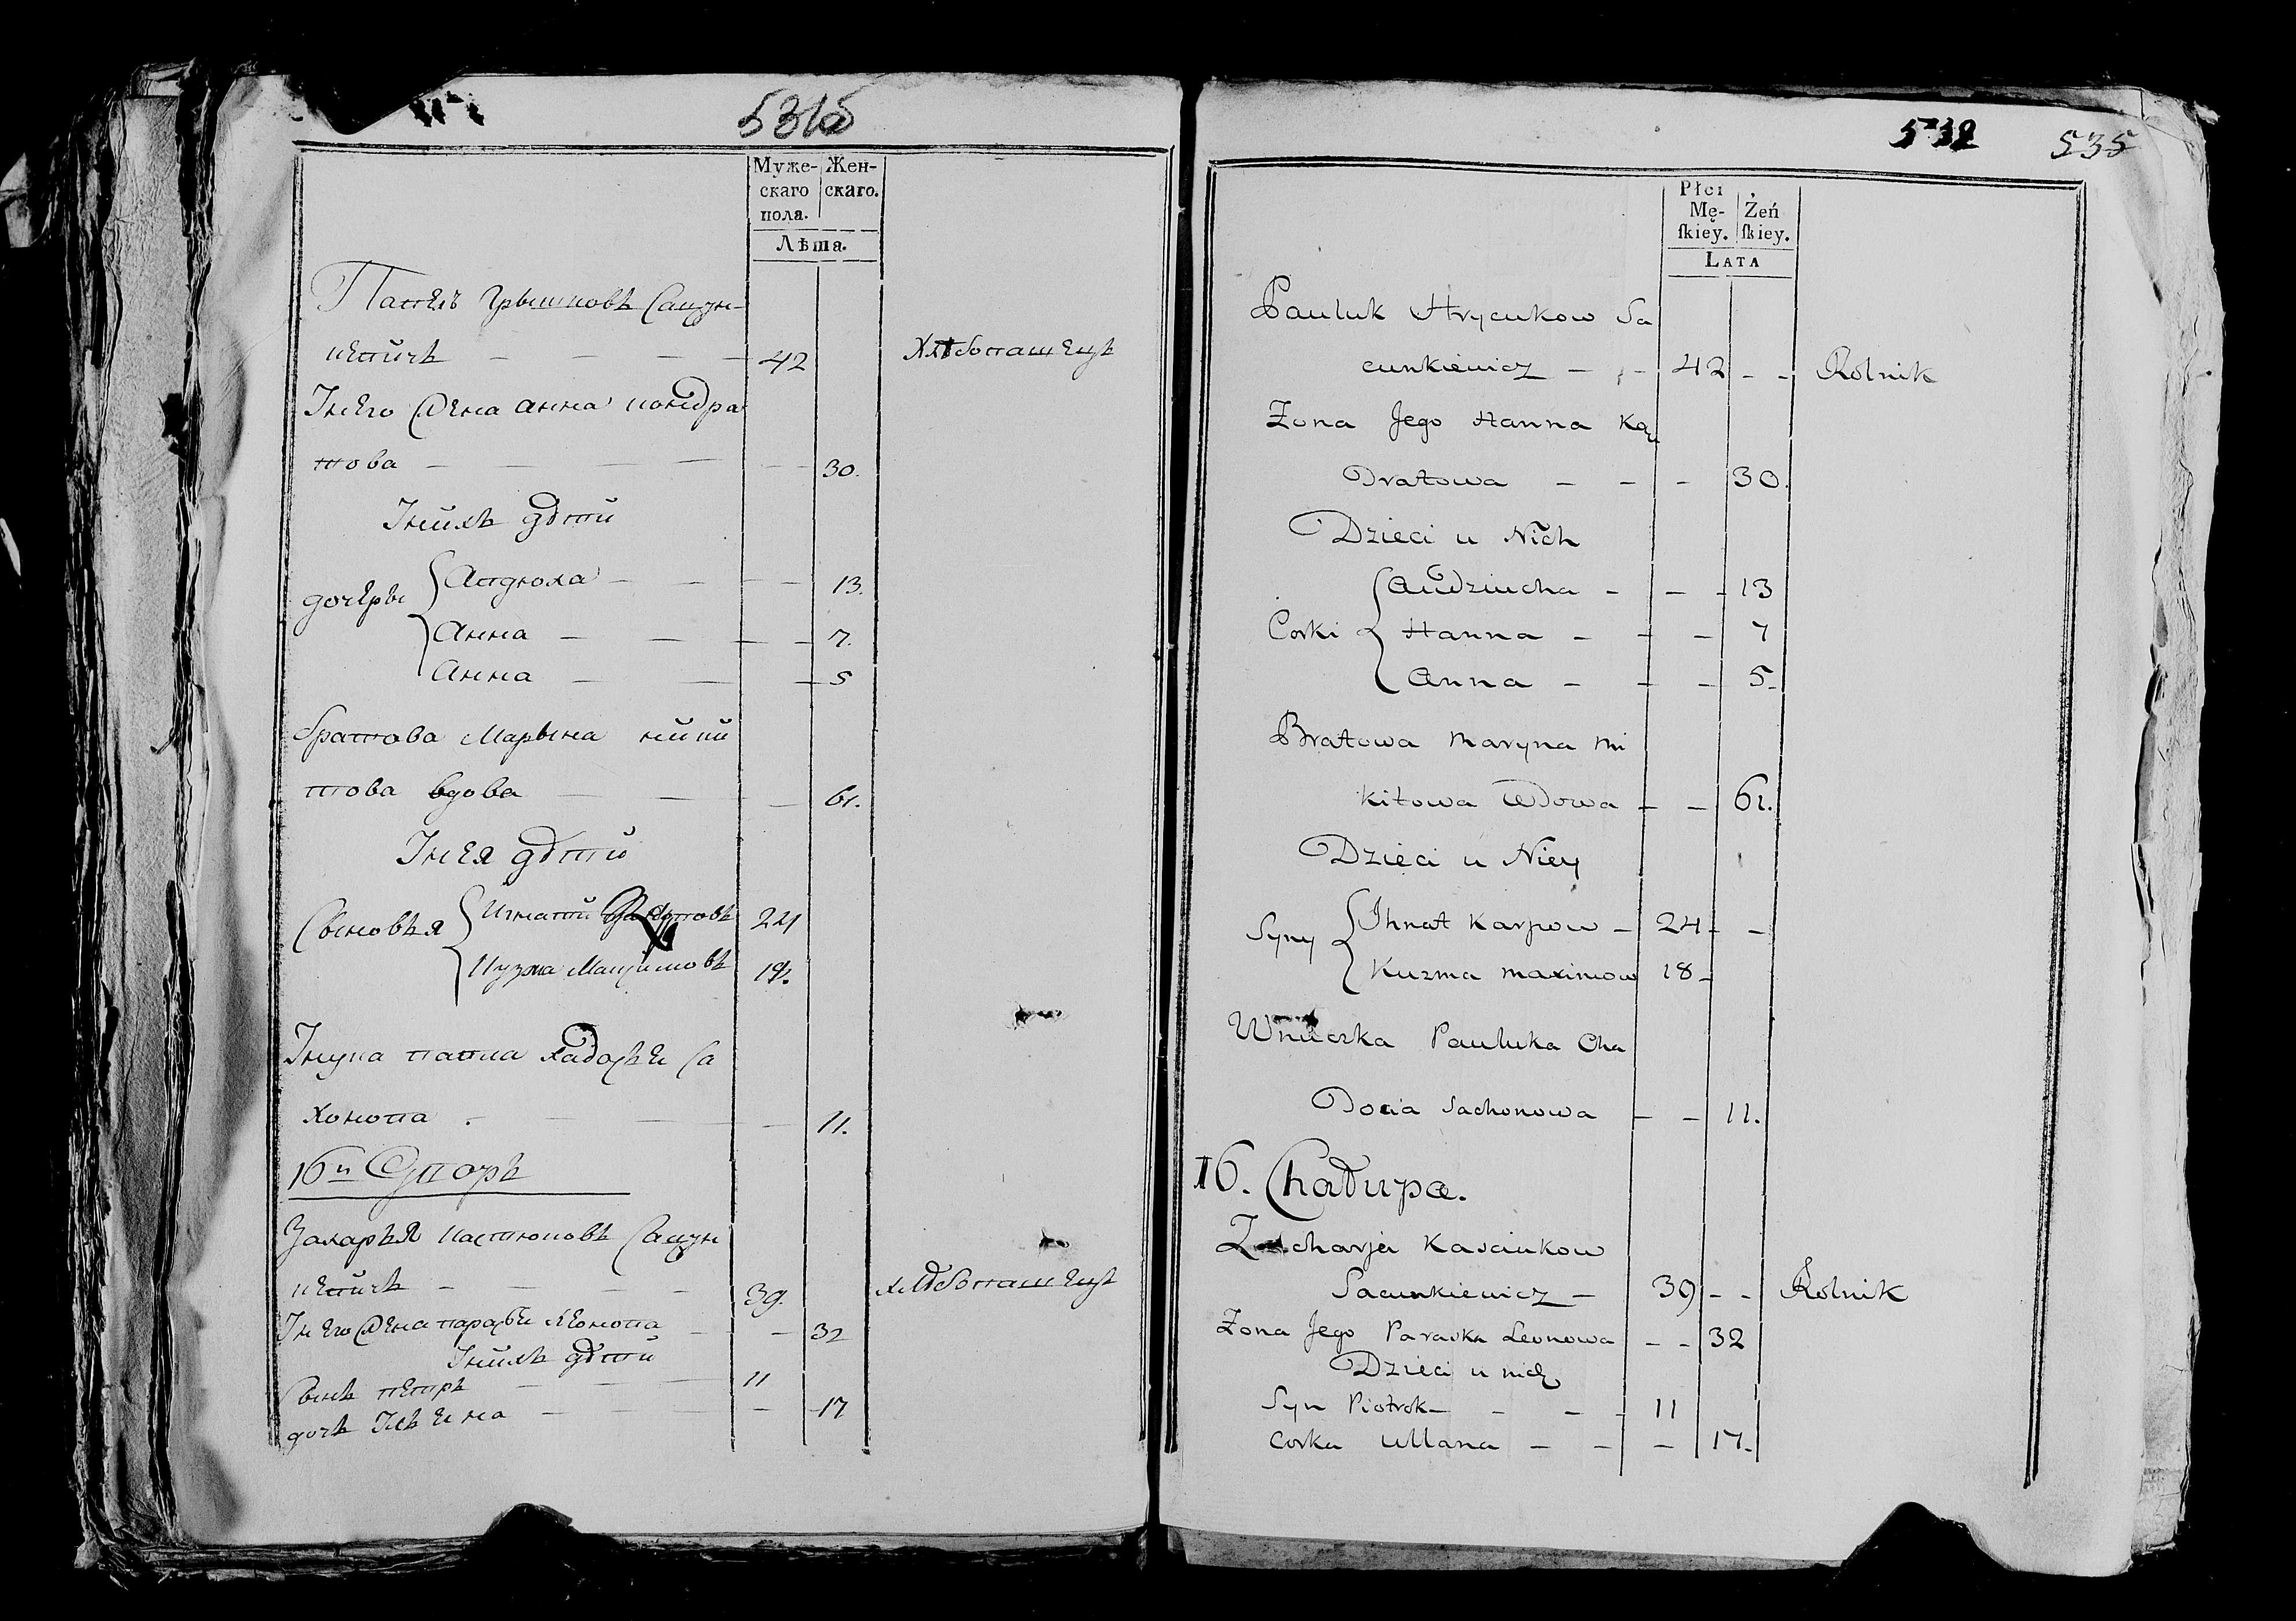 Муже- Жен-
скаго скаго.
пола.
Лѣта.
Павелъ Грыцковъ Сацун-
кевичъ — — — — 42 Хлѣбопашецъ
У него жена Анна Кондра
това — — — — 30.
У нихъ дѣти
дочеры Авдюха — — — 13.
Анна — — — 7.
Анна — — — 5
братова Марына Мики
това вдова — — — 61.
У нея дѣти
Сыновья Игнатъ 24
Кузма Мацимовъ 18.
Внука Павла Хадосья Са
хонова — — — 11.
16й Дворъ
Захарья Кастюковъ Сацун
кевичъ — — — 39. Хлѣбопашецъ
У него жена Параска Леонова — — 32
У нихъ дѣти
Сынъ Петръ — — — 11
дочь Ульяна — — — — 17
532 535
Płci
Mę- Żeń
ſkiey. ſkiey.
LATA
Pauluk Hrycukow Sa
cunkiewicz — — 42 — — Rolnik
Żona Jego Hanna Kon
Dratowa — — — 30.
Dzieci u Nich
Corki Audziucha — — — 13
Hanna — — — 7
Anna — — — 5—
Bratowa Maryna Mi
kitowa Wdowa — — 61.
Dzieci u Niey
Syny Ihnat Karpow — 24 — —
Kuzma Maximow 18—
Wnuczka Pauluka Cha
Docia Sachonowa — — 11.
16. Chałupa.
Zacharja Kasciukow
Sacunkiewicz — 39 — — Rolnik
Żona Jego Paraska Leonowa — — 32
Dzieci u nich
Syn Piotrok — — — — 11
Corka Ullana — — — 17.—